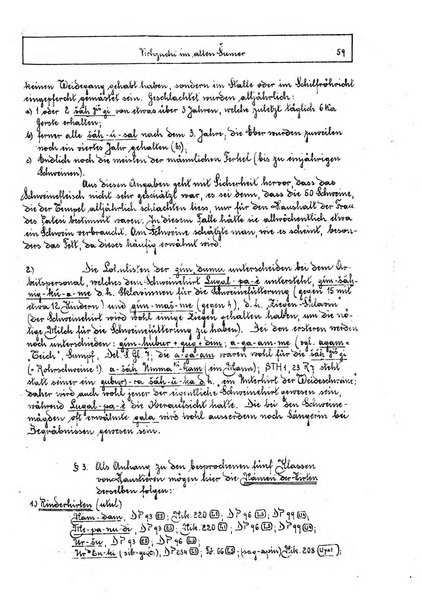 Viehzucht im alten Sumer 59
keinen Weidegang gehabt haben, sondern im Stalle oder im Schilfröhricht
eingepfercht gemästet sein. Geschlachtet wurden alljährlich:
a) 1 oder 2 šáḫ gi von etwa über 3 Jahren, welche zuletzt täglich 6 Ka
Gerste erhalten;
b) ferner alle šáḫ-ú-sal nach dem 3. Jahre, die Eber wurden zuweilen
noch ein viertes Jahr gehalten (b);
c) Endlich noch die meisten der männlichen Ferkel (bis zu einjährigen
Schweinen).
Aus diesen Angaben geht mit Sicherheit hervor, dass das
Schweinefleisch nicht sehr geschätzt war, es sei denn, dass die 50 Schweine,
die der Tempel alljährlich schlachten liess, nur für den Haushalt der Frau
des Patesi bestimmt waren. In diesem Falle hätte sie allwöchentlich etwa
ein Schwein verbraucht. Am Schweine schätzte man, wie es scheint, beson-
ders das Fett, da dieses häufig erwähnt wird.
2) Die Lohnlisten der gim, dumu unterscheiden bei dem Ar-
beitspersonal, welches dem Schweinehirt Lugal-pa-è untersteht, gim-šáḫ-
nig-kú-a-me d.h. Sklavinnen für die Schweinefütterung (gegen 15 mit
etwa 12 Kindern) und gim-maš-me (gegen 4), d.h. Ziegen-Sklavin
(der Schweinehirt wird wohl einige Ziegen gehalten haben, um die nö-
tige Milch für die Schweinefütterung zu haben). Bei den ersteren werden
noch unterschieden: a-ga-am-me (vgl. agam =
"Teich", Sumpf. die a-ga-am waren wohl für die šáḫ gi
(= Rohrschweine!). (ein Mann); STH 1, 23 R 7 steht
statt seiner ein d.h. ein Unterhirt der Weideschweine;
daher wird auch wohl jener der eigentliche Schweinehirt gewesen sein,
während Lugal-pa-è die Oberaufsicht hatte. Die bei den Schweine-
mägden oft erwähnte gala wird wohl ausserdem noch Sängerin bei
Begräbnissen gewesen sein.
§ 3. Als Anhang zu den besprochenen fünf Klassen
von Haustieren mögen hier die Namen der Hirten
derselben folgen:
1) Rinderhirten (utul)
DP 93 Nik. 220 DP 96 DP 99
DP 93 Nik. 220 DP 96 DP 99
DP 93 DP 96
DP 234 Nik. 208